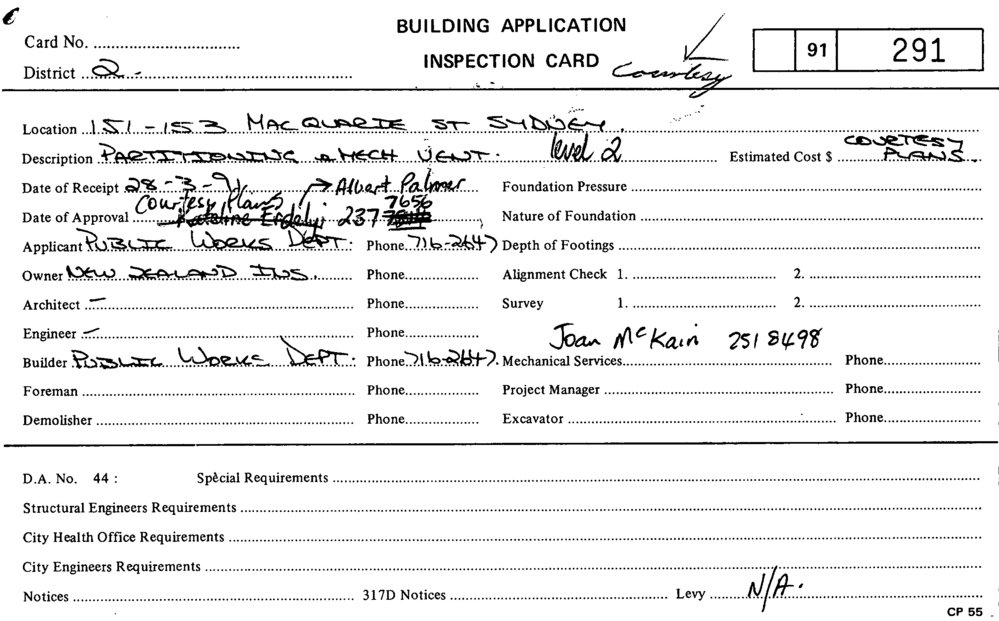 BUILDING APPLICATION
INSPECTION CARD
Courtesy
91 291
Card No.
District 2.
Location 151-153 MACQUARIE ST SYDNEY.
Description PARTITIONING & MECH VENT. level 2 Estimated Cost $ COURTESY PLANS.
Date of Receipt 28-3-91. → Albert Palmer Foundation Pressure
Date of Approval Courtesy Plans 237 7656 Nature of Foundation
Applicant PUBLIC WORKS DEPT. Phone 716-2647 Depth of Footings
Owner NEW ZEALAND INS. Phone Alignment Check 1. 2.
Architect — Phone Survey 1. 2.
Engineer — Phone Joan McKain 251 8498
Builder PUBLIC WORKS DEPT. Phone 716-2647. Mechanical Services Phone
Foreman Phone Project Manager Phone
Demolisher Phone Excavator Phone
D.A. No. 44 : Special Requirements
Structural Engineers Requirements
City Health Office Requirements
City Engineers Requirements
Notices 317D Notices Levy N/A.
CP 55